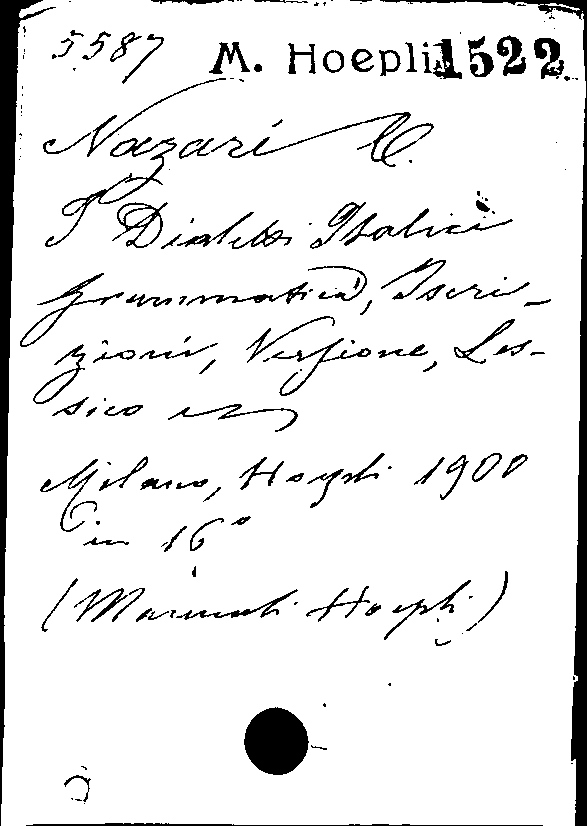 5587 M. Hoepli 1522
Nazari O.
I Dialetti Italici
grammatica, Iscri-
zioni, Versione, Les-
sico
Milano, Hoepli 1900
in 16°
(Manuali Hoepli)